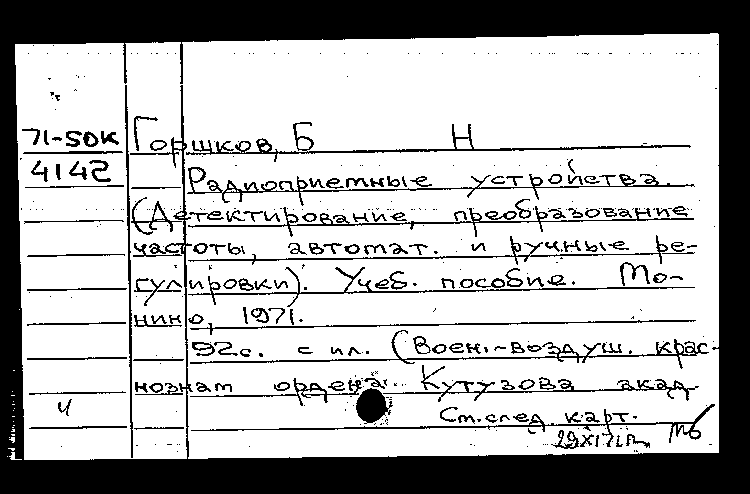 71-50K Горшков, Б Н
4142 Радиоприемные устройства.
(Детектирование, преобразование
частоты, автомат. и ручные ре-
гулировки). Учеб. пособие. Мо-
нино, 1971.
92с. с ил. (Воен.-воздуш. крас-
нознам ордена Кутузова акад
Ч Ст.след. карт.